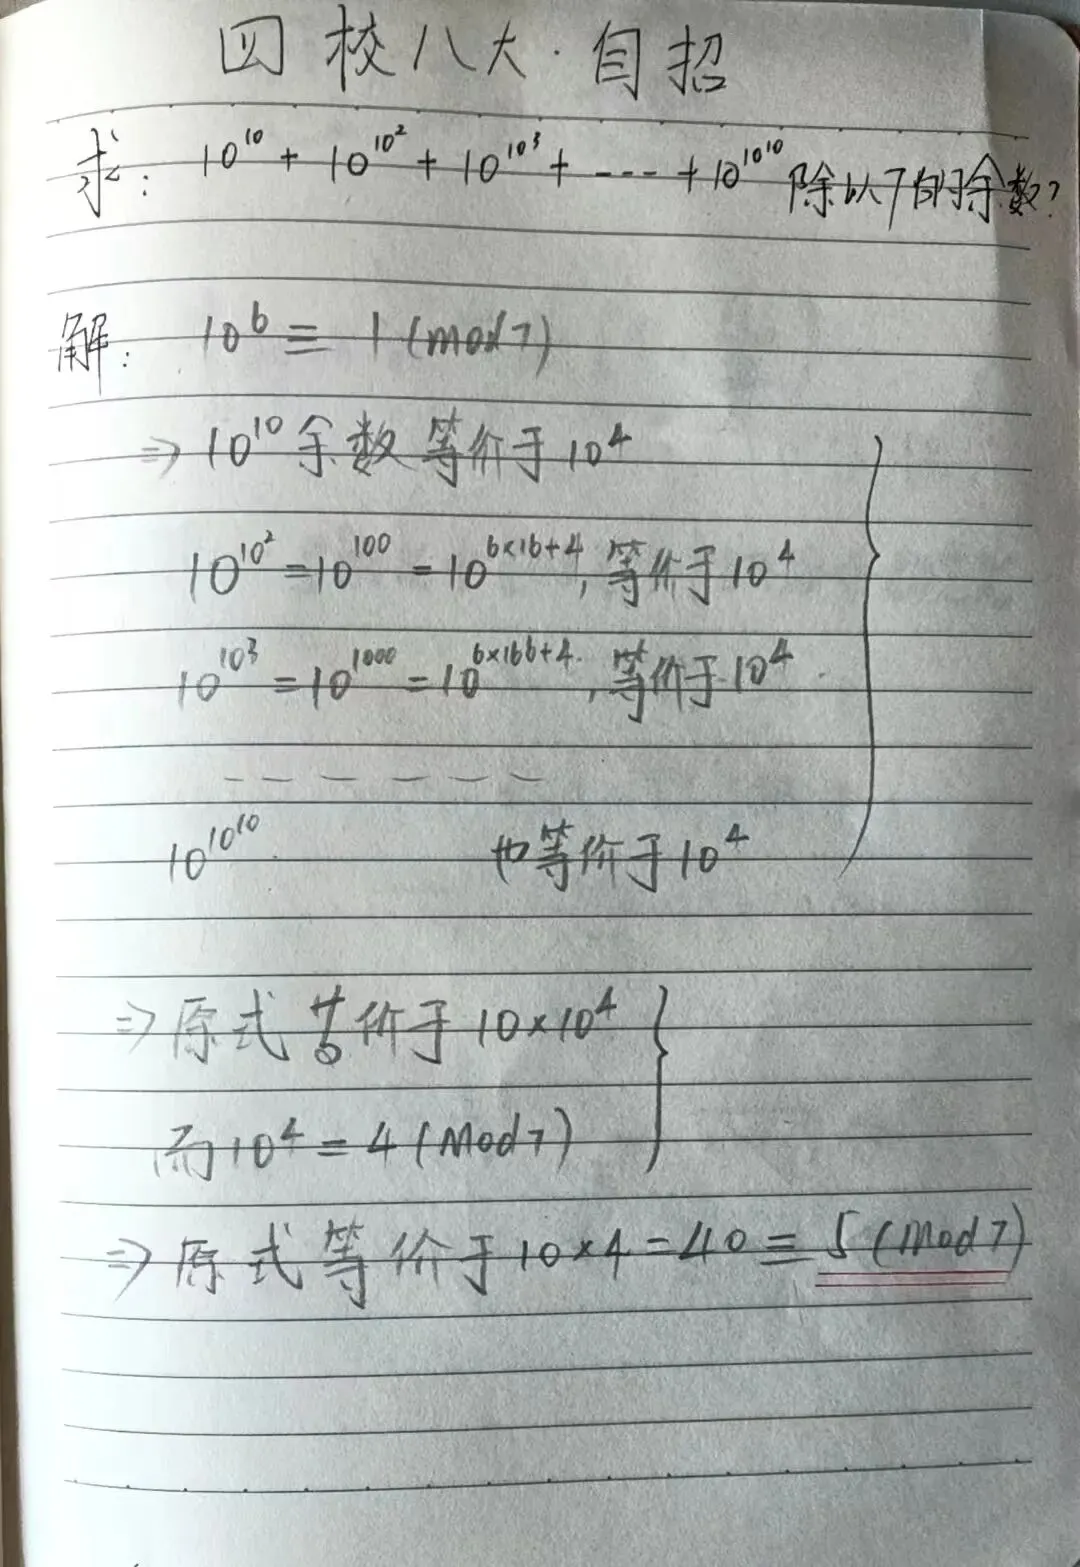 四校八大·自招
求: 10^10 + 10^10^2 + 10^10^3 + ---- + 10^10^10 除以7的余数?
解: 10^6 ≡ 1 (mod 7)
⇒ 10^10 余数等价于 10^4
10^10^2 = 10^100 = 10^6×16+4, 等价于 10^4
10^10^3 = 10^1000 = 10^6×166+4, 等价于 10^4
— — — — — —
10^10^10 也等价于 10^4
⇒ 原式等价于 10×10^4
而 10^4 ≡ 4 (Mod 7)
⇒ 原式等价于 10×4 = 40 ≡ 5 (Mod 7)